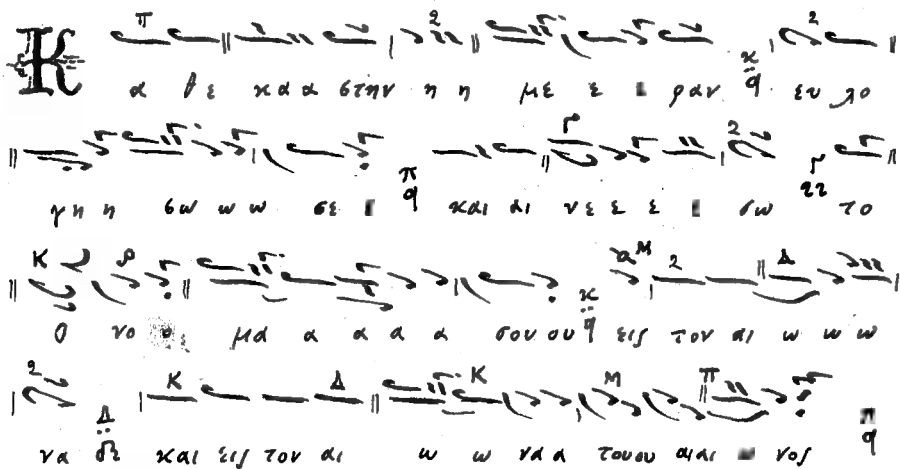 Κ α θε κα α στην η η με ε ε ραν ευ λο
γη η σω ω ω σε ε και αι νε ε ε ε σω το
ο νο ο μα α α α α σου ου εις τον αι ω ω ω
να και εις τον αι ω ω να α του ου αι αι ω νος